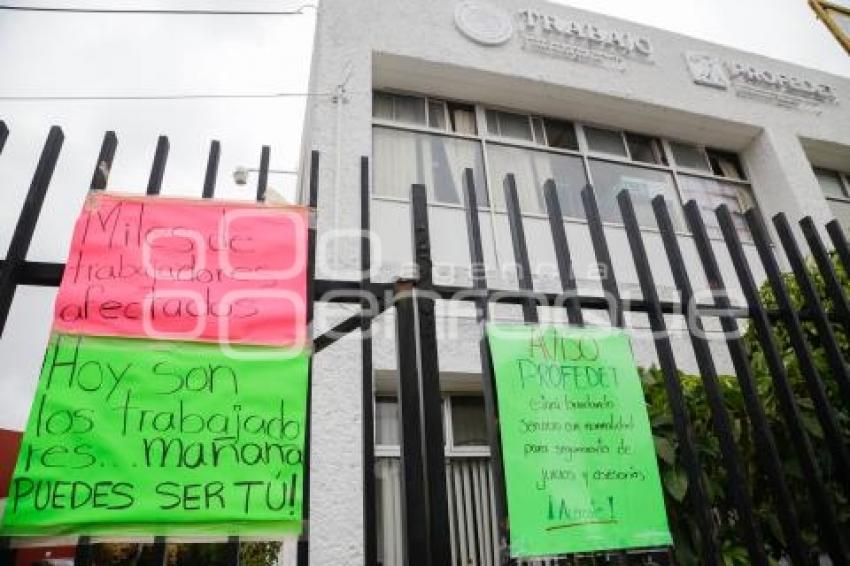 TRABAJO
PROFEDET
Miles de
trabajadores
afectados
Hoy son
los trabajado
res... mañana
PUEDES SER TÚ!
AVISO
PROFEDET
está brindando
servicio con normalidad
para seguimiento de
juicios y asesorías
¡Acércate!
agencia
enfoque